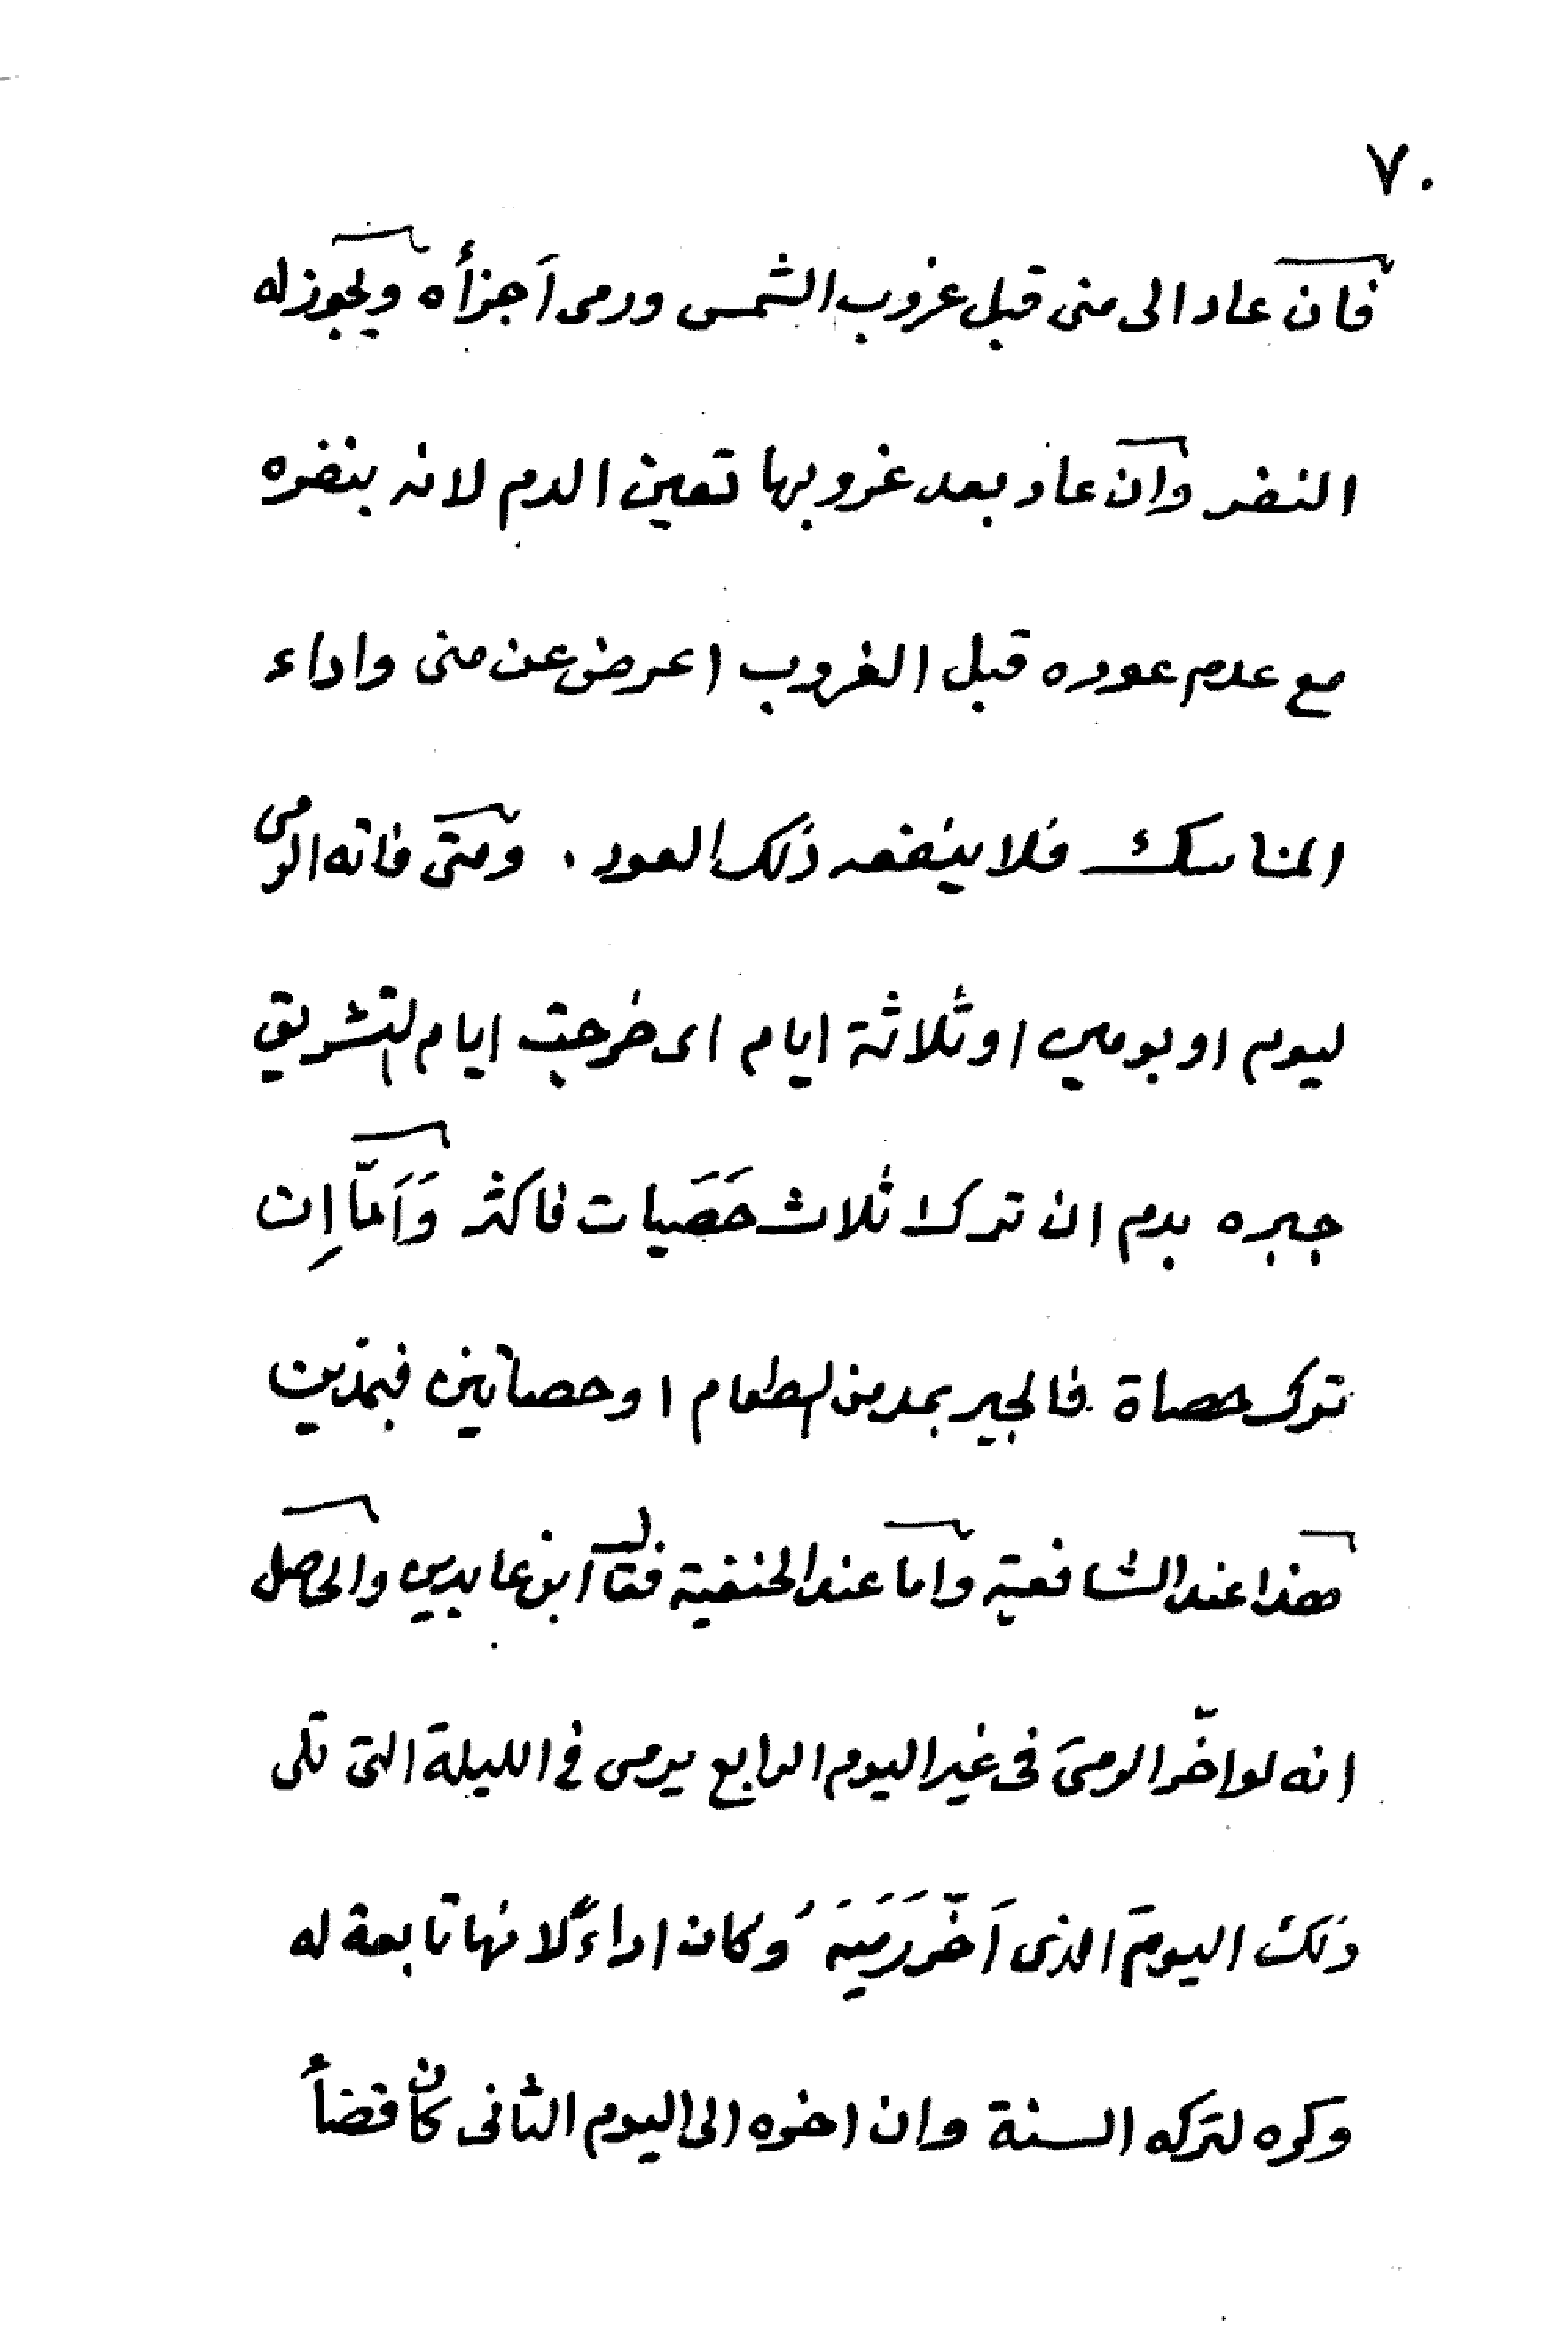 ٧٠
فان عاد الى منى قبل غروب الشمس ورمى اَجزأه ويجوز له
النفر وان عاد بعد غروبها تعين الدم لانه بنفره
مع عدم عوده قبل الغروب اعرض عن منى واداء
المناسك فلا ينفعه ذلك العود . ومتى فاته الرمى
ليوم او يومين او ثلاثة ايام اى خرجت ايام التشريق
جبره بدم ان ترك ثلاث حَصَيات فاكثر وَاَمّا اِن
ترك حصاة فالجبر بمد من الطعام او حصاتين فبمدّين
هذا عند الشافعية واما عند الحنفية فقال ابن عابدين والحاصل
انه لو اخّر الرمىَ فى غير اليوم الرابع يرمى فى الليلة التى تلى
ذلك اليومَ الذى اَخّرَ رَميَهُ وكان اداءً لانها تابعة له
وكره لتركه السنة وان اخره الى اليوم الثانى كان قضأً